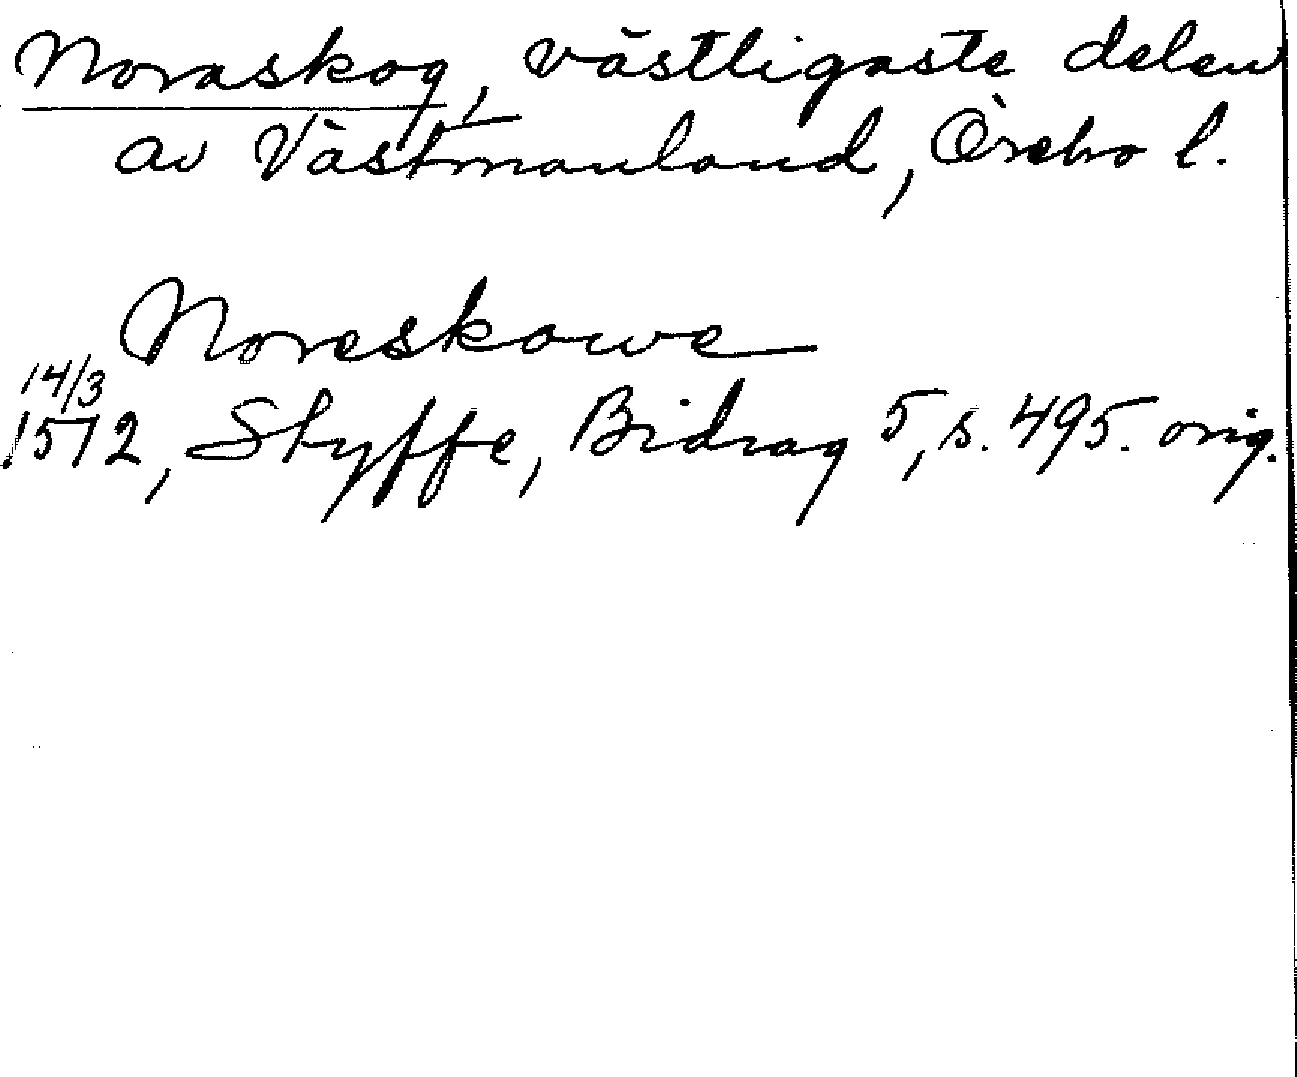 Noraskog, västligaste delen
av Västmanland, Örebro l.
Noreskowe
14/3
1512, Styffe, Bidrag 5, s. 495. orig.